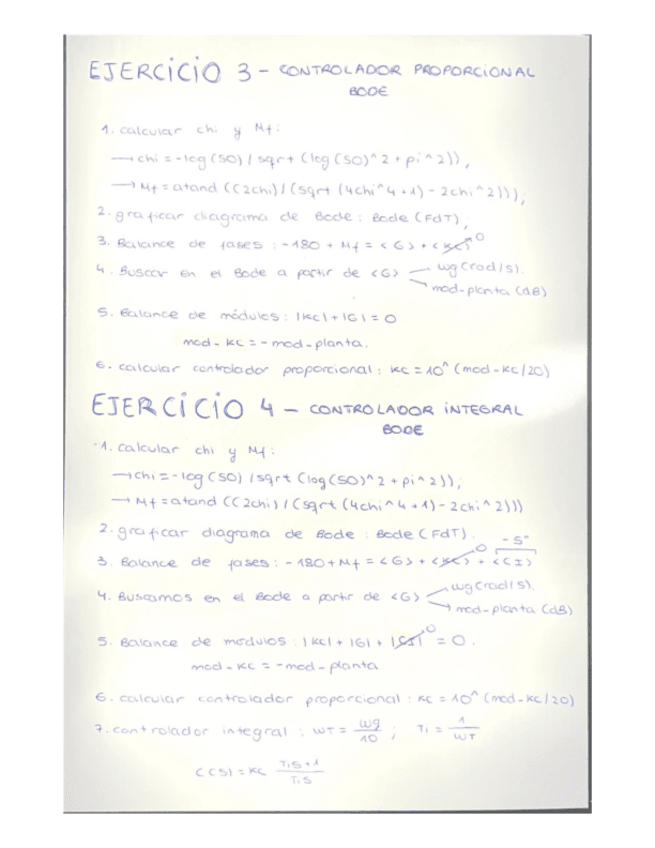 EJERCICIO 3 - CONTROLADOR PROPORCIONAL
BODE
1. calcular chi y Mf:
→ chi = -log(SO) / sqrt (log(SO)^2 + pi^2));
→ Mf = atand ((2chi) / (sqrt (4chi^4 + 1) - 2chi^2)));
2. graficar diagrama de Bode : Bode (FdT);
3. Balance de fases : -180 + Mf = <G> + <Kc> 0
4. Buscar en el Bode a partir de <G> wg (rad/s).
mod-planta (dB)
5. Balance de módulos: |Kc| + |G| = 0
mod-Kc = -mod-planta.
6. calcular controlador proporcional: Kc = 10^(mod-Kc/20)
EJERCICIO 4 - CONTROLADOR INTEGRAL
BODE
1. calcular chi y Mf:
→ chi = -log(SO) / sqrt (log(SO)^2 + pi^2));
→ Mf = atand ((2chi) / (sqrt (4chi^4 + 1) - 2chi^2)))
2. graficar diagrama de Bode : Bode (FdT).
3. Balance de fases : -180 + Mf = <G> + <Kc> 0 + <CI> -5°
4. Buscamos en el Bode a partir de <G> wg (rad/s).
mod-planta (dB)
5. Balance de módulos : |Kc| + |G| + |CI| 0 = 0.
mod-Kc = -mod-planta
6. calcular controlador proporcional : Kc = 10^(mod-Kc/20)
7. controlador integral : WT = wg/10 ; Ti = 1/WT
C(S) = Kc TiS+1/TiS